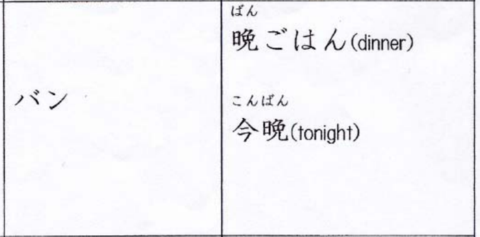 バン
ばん
晩ごはん(dinner)
こんばん
今晩(tonight)